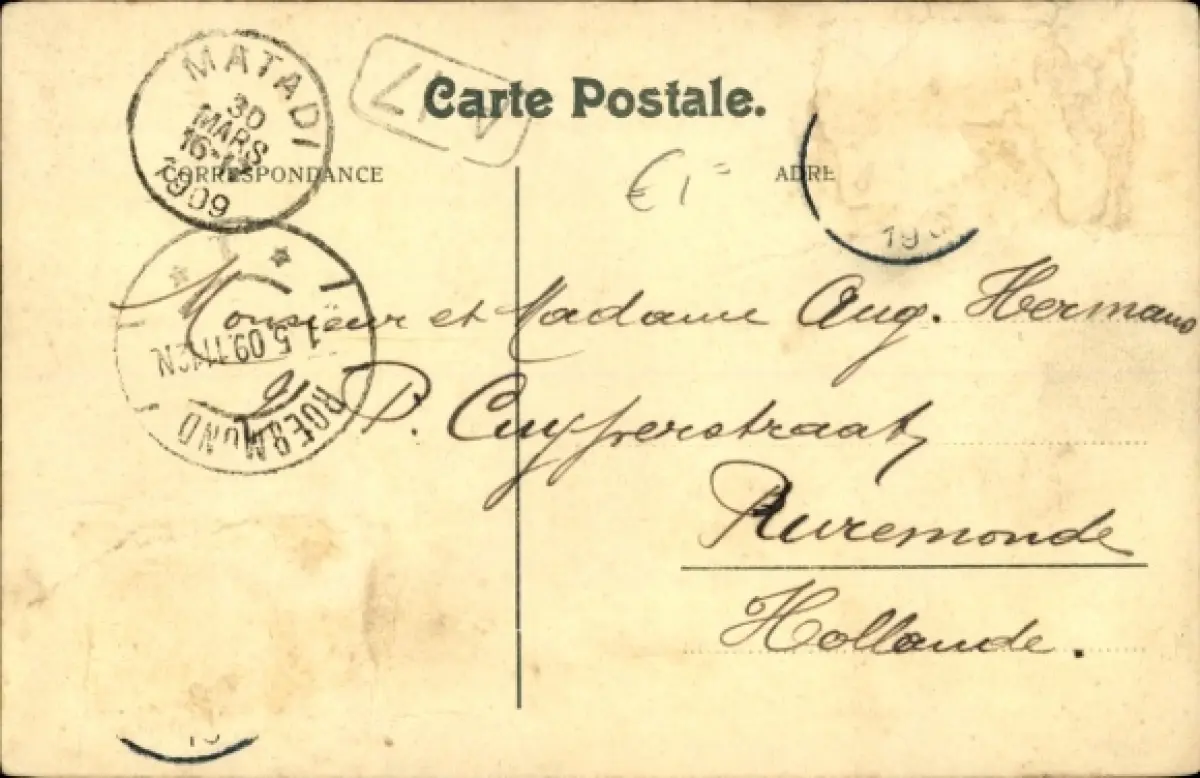 MATADI
30
MARS
16-
1909
Carte Postale.
CORRESPONDANCE
ADRE
€ 1=
19
Monsieur et Madame Aug. Hermans
P. Cuyperstraat
Ruremonde
Hollande.
1.5.09.11-12N
ROERMOND